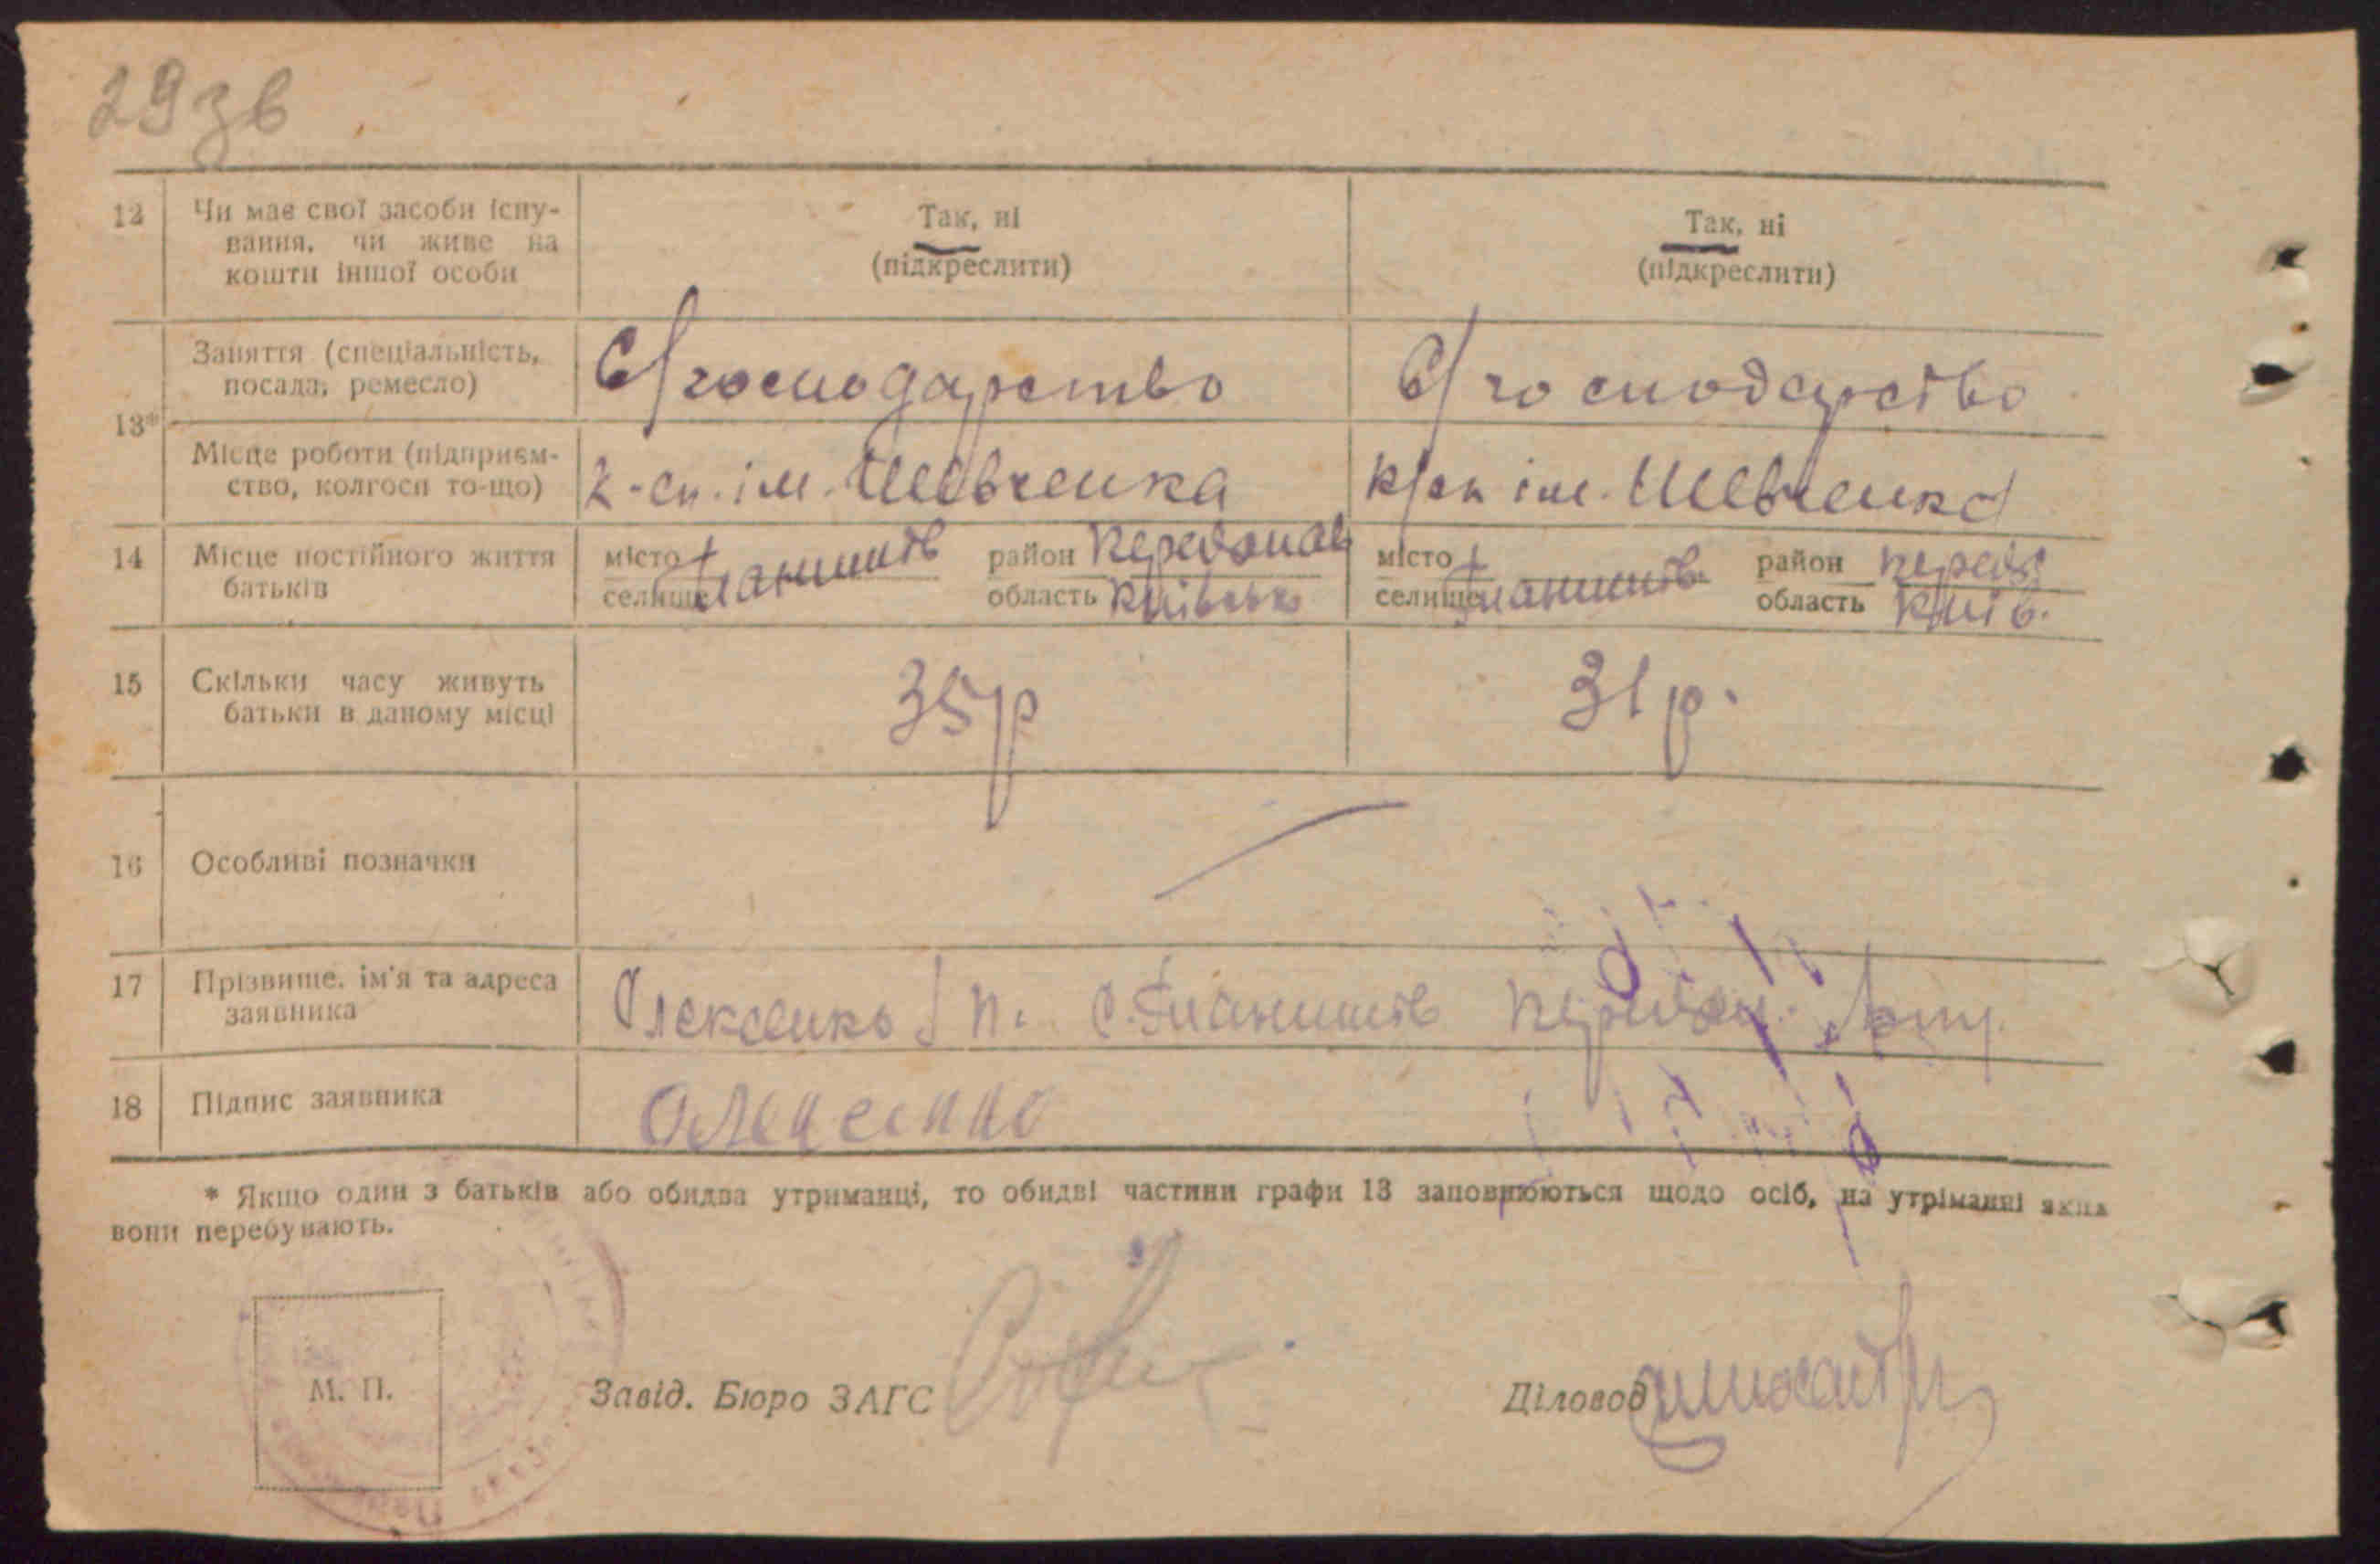 29зв
12 Чи має свої засоби існу-
вання, чи живе на
кошти іншої особи
Так, ні
(підкреслити)
Так, ні
(підкреслити)
13*
Заняття (спеціальність,
посада, ремесло)
С/господарство
С/господарство
Місце роботи (підприєм-
ство, колгосп то-що)
к-сп. ім. Шевченка
к/сп ім. Шевченка
14 Місце постійного життя
батьків
місто
селище
район
область Київська
місто
селище
район
область Київ.
15 Скільки часу живуть
батьки в даному місці
35р
31р.
16 Особливі позначки
17 Прізвище, ім'я та адреса
заявника
Олексенко П. с.
18 Підпис заявника
Олексенко
* Якщо один з батьків або обидва утриманці, то обидві частини графи 13 заповнюються щодо осіб, на утріманні яких
вони перебувають.
М. П.
Завід. Бюро ЗАГС
Діловод